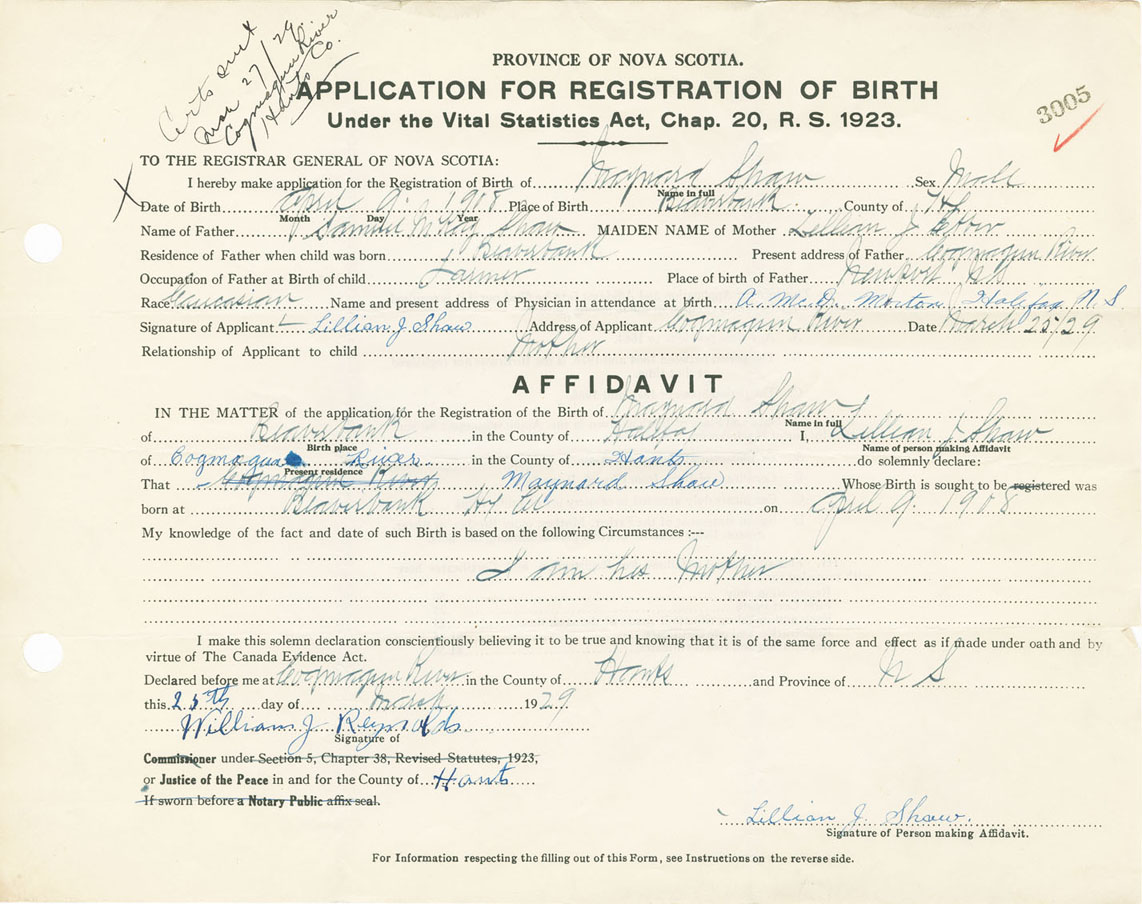 Certs sent
Mar 27/29
Cogmagun River
Hants Co.
PROVINCE OF NOVA SCOTIA.
APPLICATION FOR REGISTRATION OF BIRTH
Under the Vital Statistics Act, Chap. 20, R. S. 1923.
3005
TO THE REGISTRAR GENERAL OF NOVA SCOTIA:
I hereby make application for the Registration of Birth of Maynard Shaw Sex Male
Name in full
X Date of Birth April 9. 1908 Place of Birth Beaverbank. County of Hfx
Month Day Year
Name of Father Samuel McKay Shaw MAIDEN NAME of Mother Lillian J
Residence of Father when child was born Beaverbank Present address of Father Cogmagun River
Occupation of Father at Birth of child Farmer Place of birth of Father Newport
Race Caucasian Name and present address of Physician in attendance at birth A. McD. Morton Halifax N. S
Signature of Applicant Lillian J Shaw Address of Applicant Cogmagun River Date March 25/29
Relationship of Applicant to child Mother
AFFIDAVIT
IN THE MATTER of the application for the Registration of the Birth of Maynard Shaw
Name in full
of Beaverbank in the County of Halifax I, Lillian J Shaw
Birth place Name of person making Affidavit
of Cogmagun River in the County of Hants do solemnly declare:
Present residence
That Cogmagun River Maynard Shaw Whose Birth is sought to be registered was
born at Beaverbank Hfx Co on April 9. 1908
My knowledge of the fact and date of such Birth is based on the following Circumstances :---
I am his Mother
I make this solemn declaration conscientiously believing it to be true and knowing that it is of the same force and effect as if made under oath and by
virtue of The Canada Evidence Act.
Declared before me at Cogmagun River in the County of Hants and Province of N S
this 25th day of March 1929
William J Reynolds
Signature of
Commissioner under Section 5, Chapter 38, Revised Statutes, 1923,
or Justice of the Peace in and for the County of Hants
If sworn before a Notary Public affix seal.
Lillian J. Shaw.
Signature of Person making Affidavit.
For Information respecting the filling out of this Form, see Instructions on the reverse side.